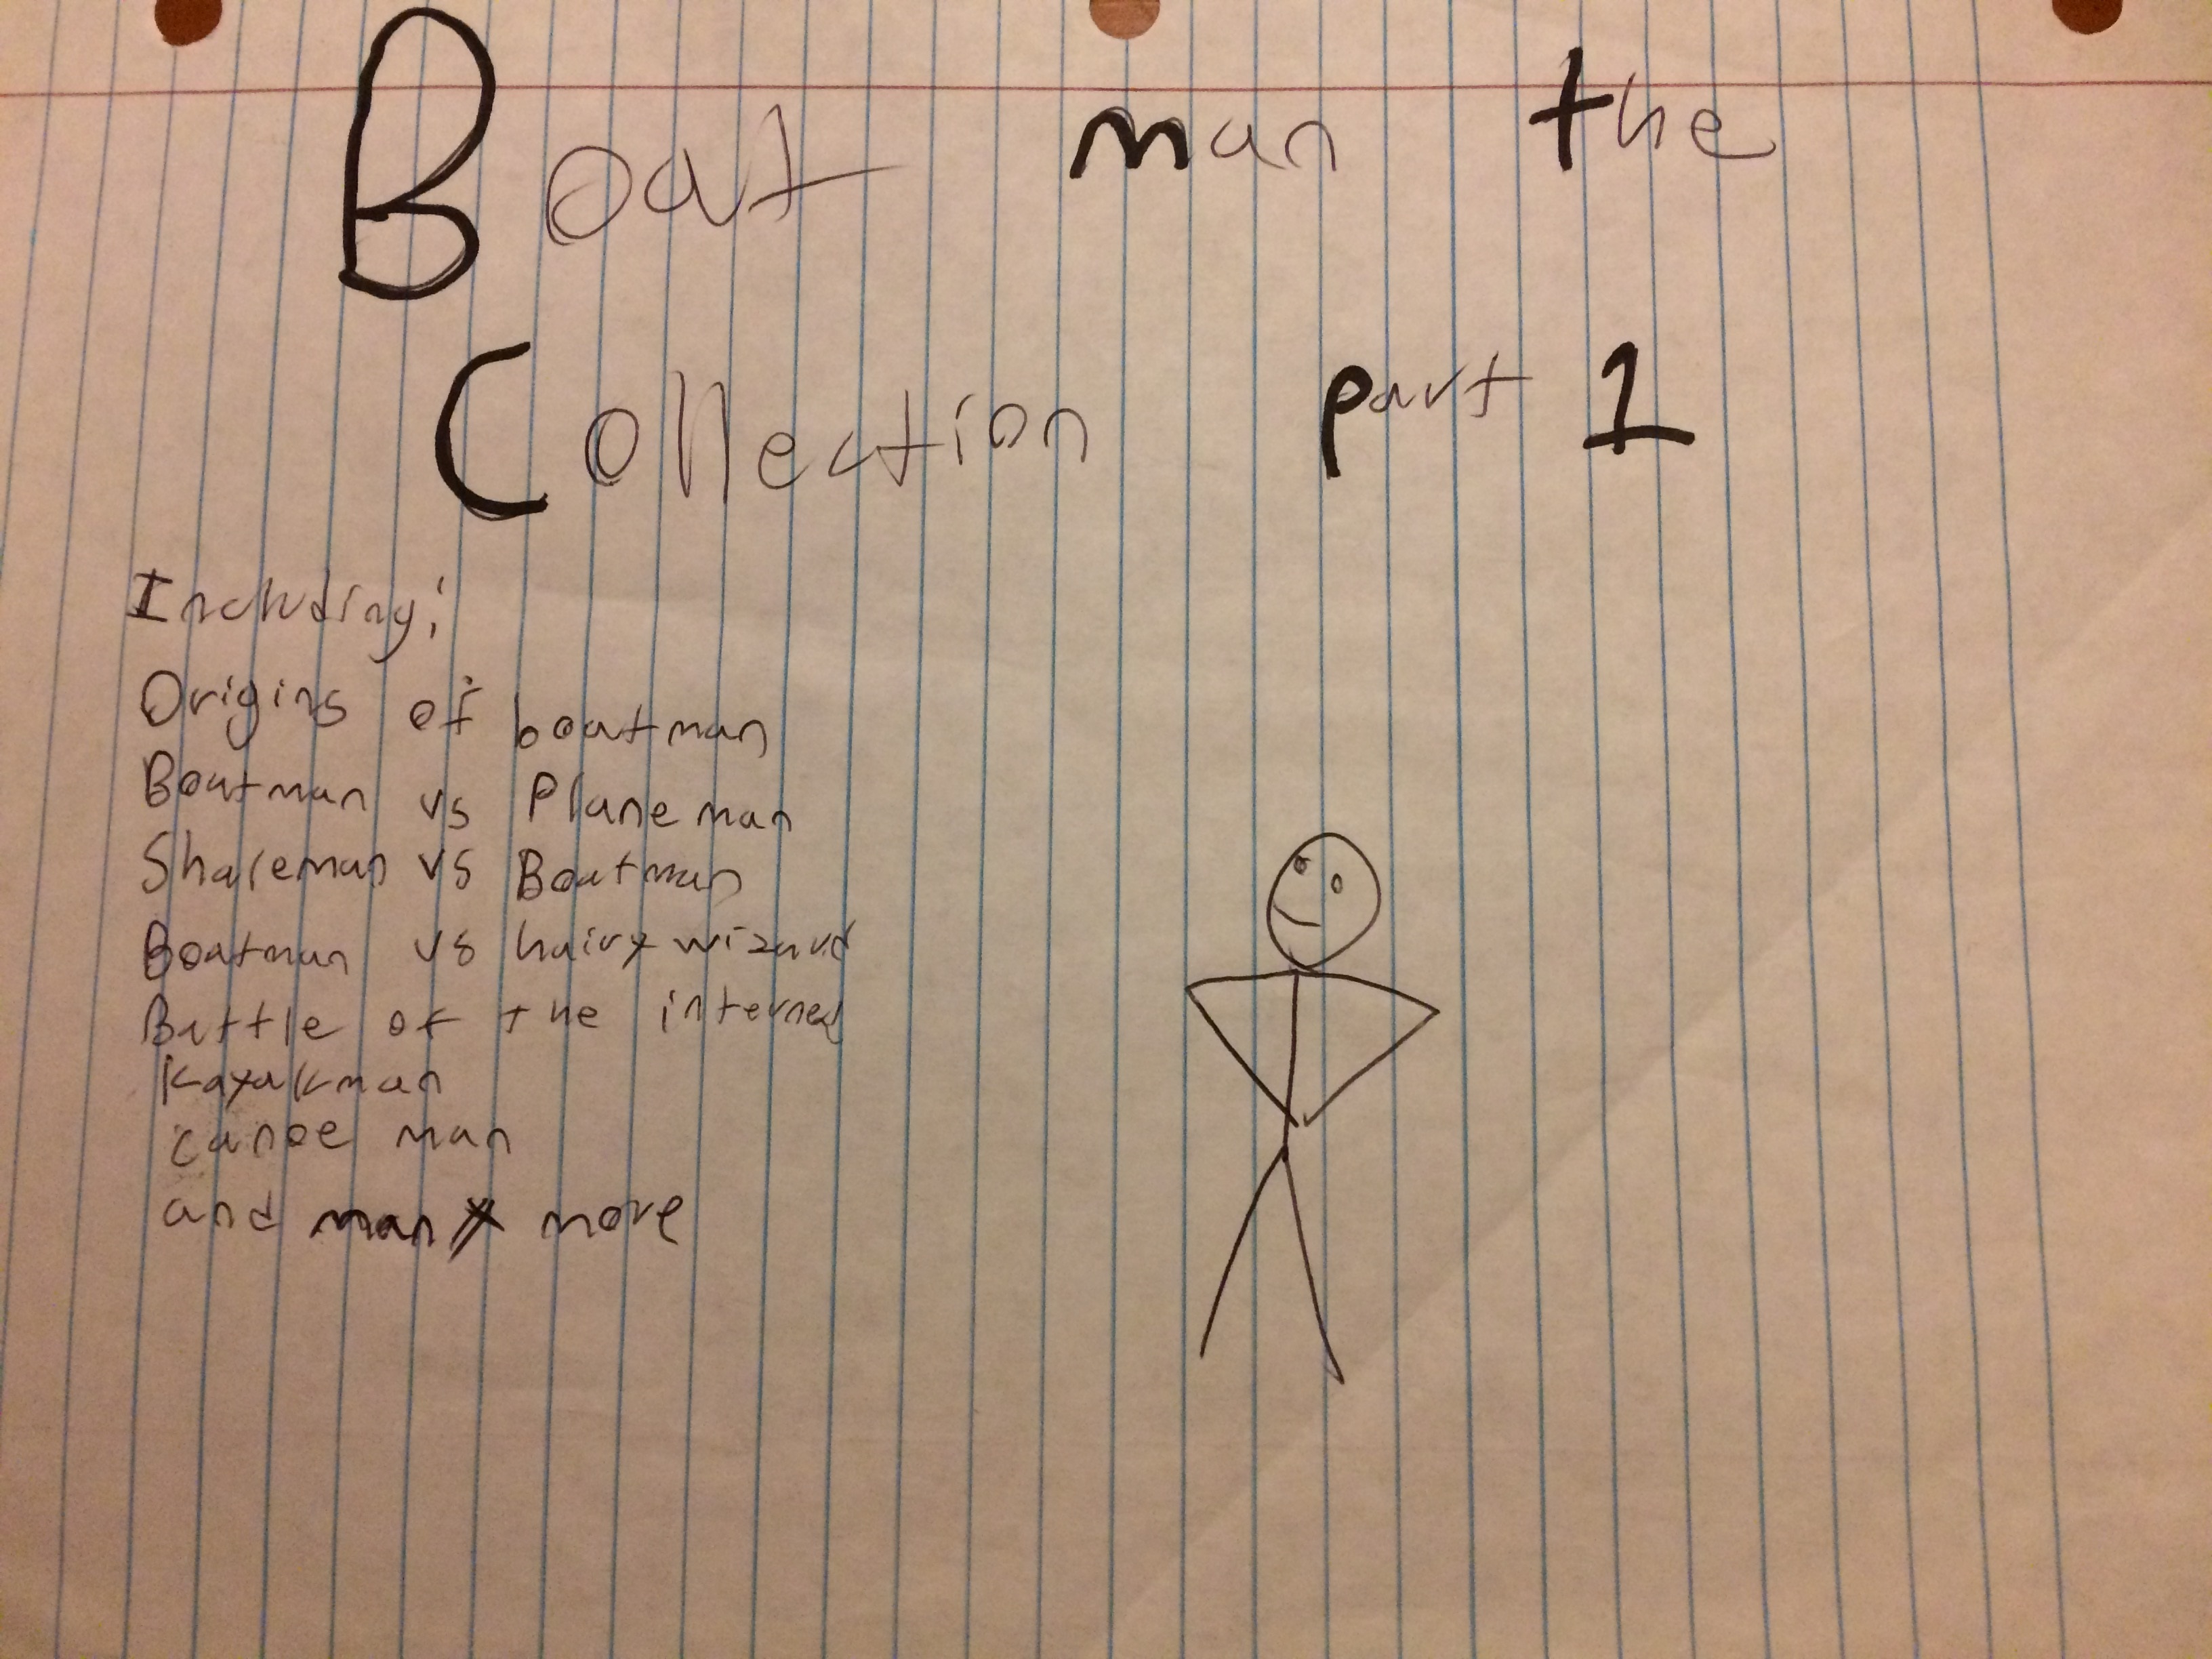 Boat man the
Collection part 1
Including:
Origins of boatman
Boatman vs Plane man
vs Boatman
Boatman vs hairy wizard
Battle of the internet
Kayakman
canoe man
and many more